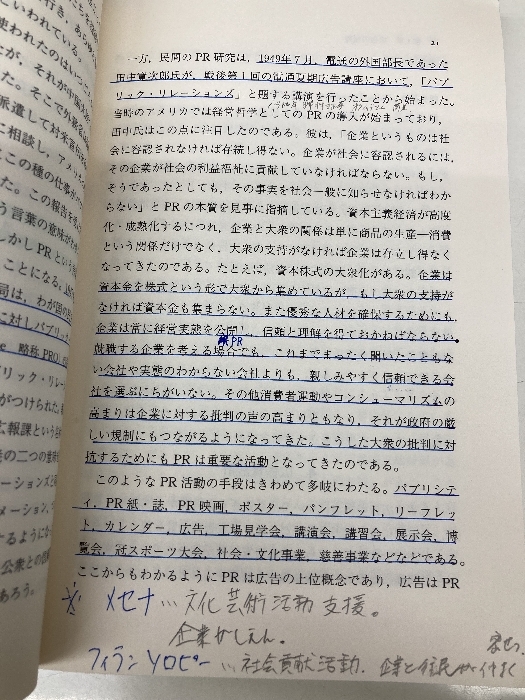 21
一方，民間のPR研究は，1949年7月，電通の外国部長であった
田中寛次郎氏が，戦後第1回の電通夏期広告講座において，「パブ
リック・リレーションズ」と題する講演を行ったことから始まった。
当時のアメリカでは経営哲学としてのPRの導入が始まっており，
田中氏はこの点に注目したのである。彼は，「企業というものは社
会に容認されなければ存続し得ない。企業が社会に容認されるには，
その企業が社会の利益福祉に貢献していなければならない。もし，
そうであったとしても，その事実を社会一般に知らせなければわか
らない」とPRの本質を見事に指摘している。資本主義経済が高度
化・成熟化するにつれ，企業と大衆の関係は単に商品の生産—消費
という関係だけでなく，大衆の支持がなければ企業は存立し得なく
なってきたのである。たとえば，資本株式の大衆化がある。企業は
資本金を株式という形で大衆から集めているが，もし大衆の支持が
なければ資本金も集まらない。また優秀な人材を確保するためにも，
企業は常に経営実態を公開し，信頼と理解を得ておかねばならない。
PR
就職する企業を考える場合でも，これまでまったく聞いたこともな
い会社や実態のわからない会社よりも，親しみやすく信頼できる会
社を選ぶにちがいない。その他消費者運動やコンシューマリズムの
高まりは企業に対する批判の声の高まりともなり，それが政府の厳
しい規制にもつながるようになってきた。こうした大衆の批判に対
抗するためにもPRは重要な活動となってきたのである。
このようなPR活動の手段はきわめて多岐にわたる。パブリシテ
ィ，PR紙・誌，PR映画，ポスター，パンフレット，リーフレッ
ト，カレンダー，広告，工場見学会，講演会，講習会，展示会，博
覧会，冠スポーツ大会，社会・文化事業，慈善事業などなどである。
ここからもわかるようにPRは広告の上位概念であり，広告はPR
※ メセナ…文化芸術活動支援。
企業がしえん。
フィランソロピー…社会貢献活動．企業と住民が